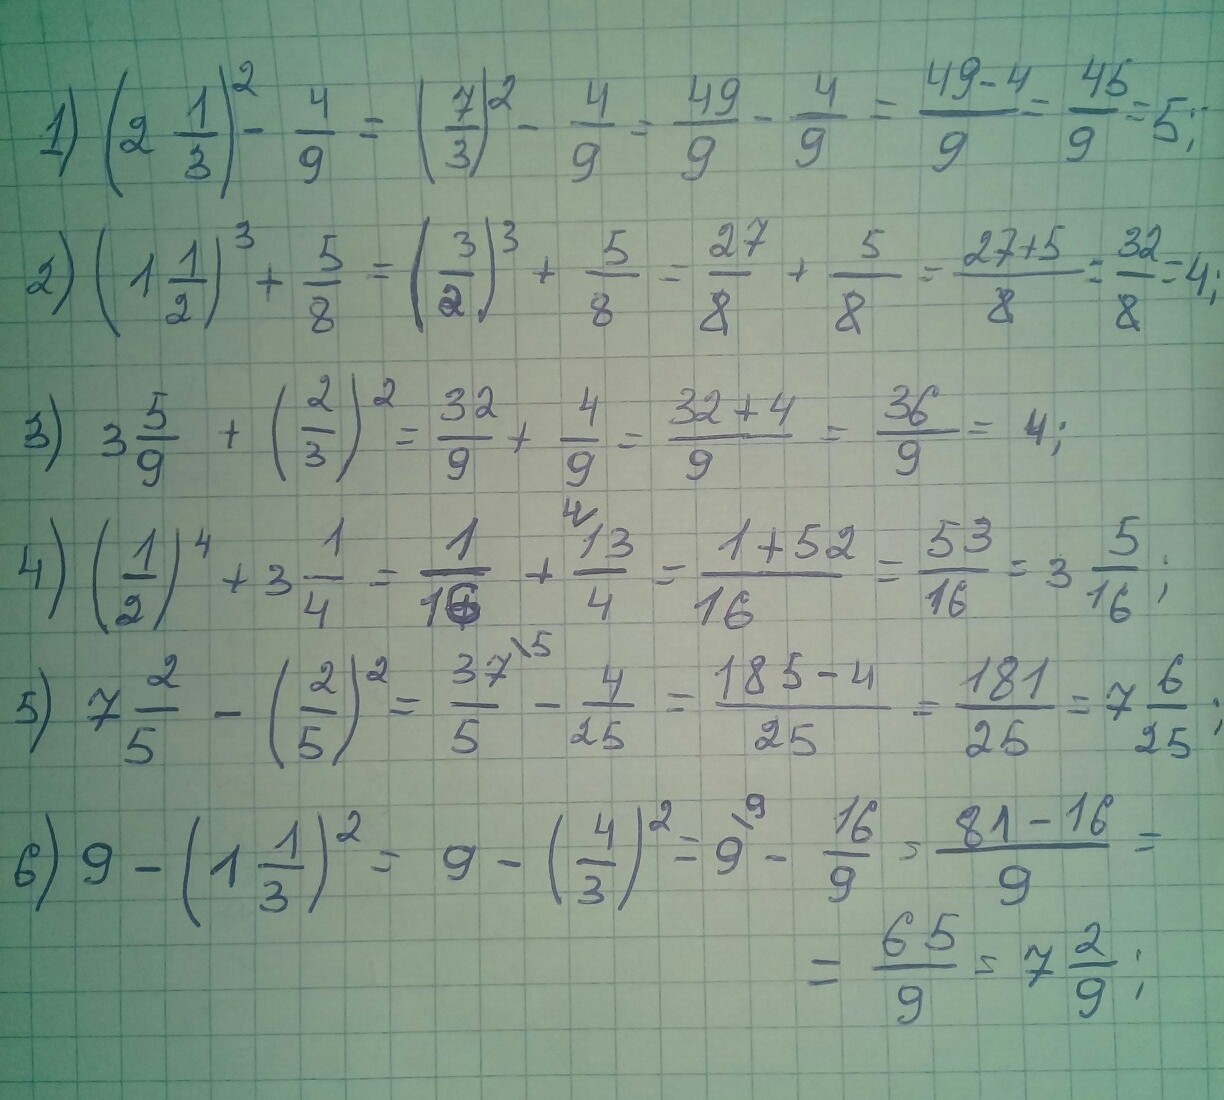 1) (2 1/3)² - 4/9 = (7/3)² - 4/9 = 49/9 - 4/9 = (49-4)/9 = 45/9 = 5;
2) (1 1/2)³ + 5/8 = (3/2)³ + 5/8 = 27/8 + 5/8 = (27+5)/8 = 32/8 = 4;
3) 3 5/9 + (2/3)² = 32/9 + 4/9 = (32+4)/9 = 36/9 = 4;
4) (1/2)⁴ + 3 1/4 = 1/16 + ⁴⁄13/4 = (1+52)/16 = 53/16 = 3 5/16;
5) 7 2/5 - (2/5)² = 37\⁵/5 - 4/25 = (185-4)/25 = 181/25 = 7 6/25;
6) 9 - (1 1/3)² = 9 - (4/3)² = 9\⁹ - 16/9 = (81-16)/9 =
= 65/9 = 7 2/9;